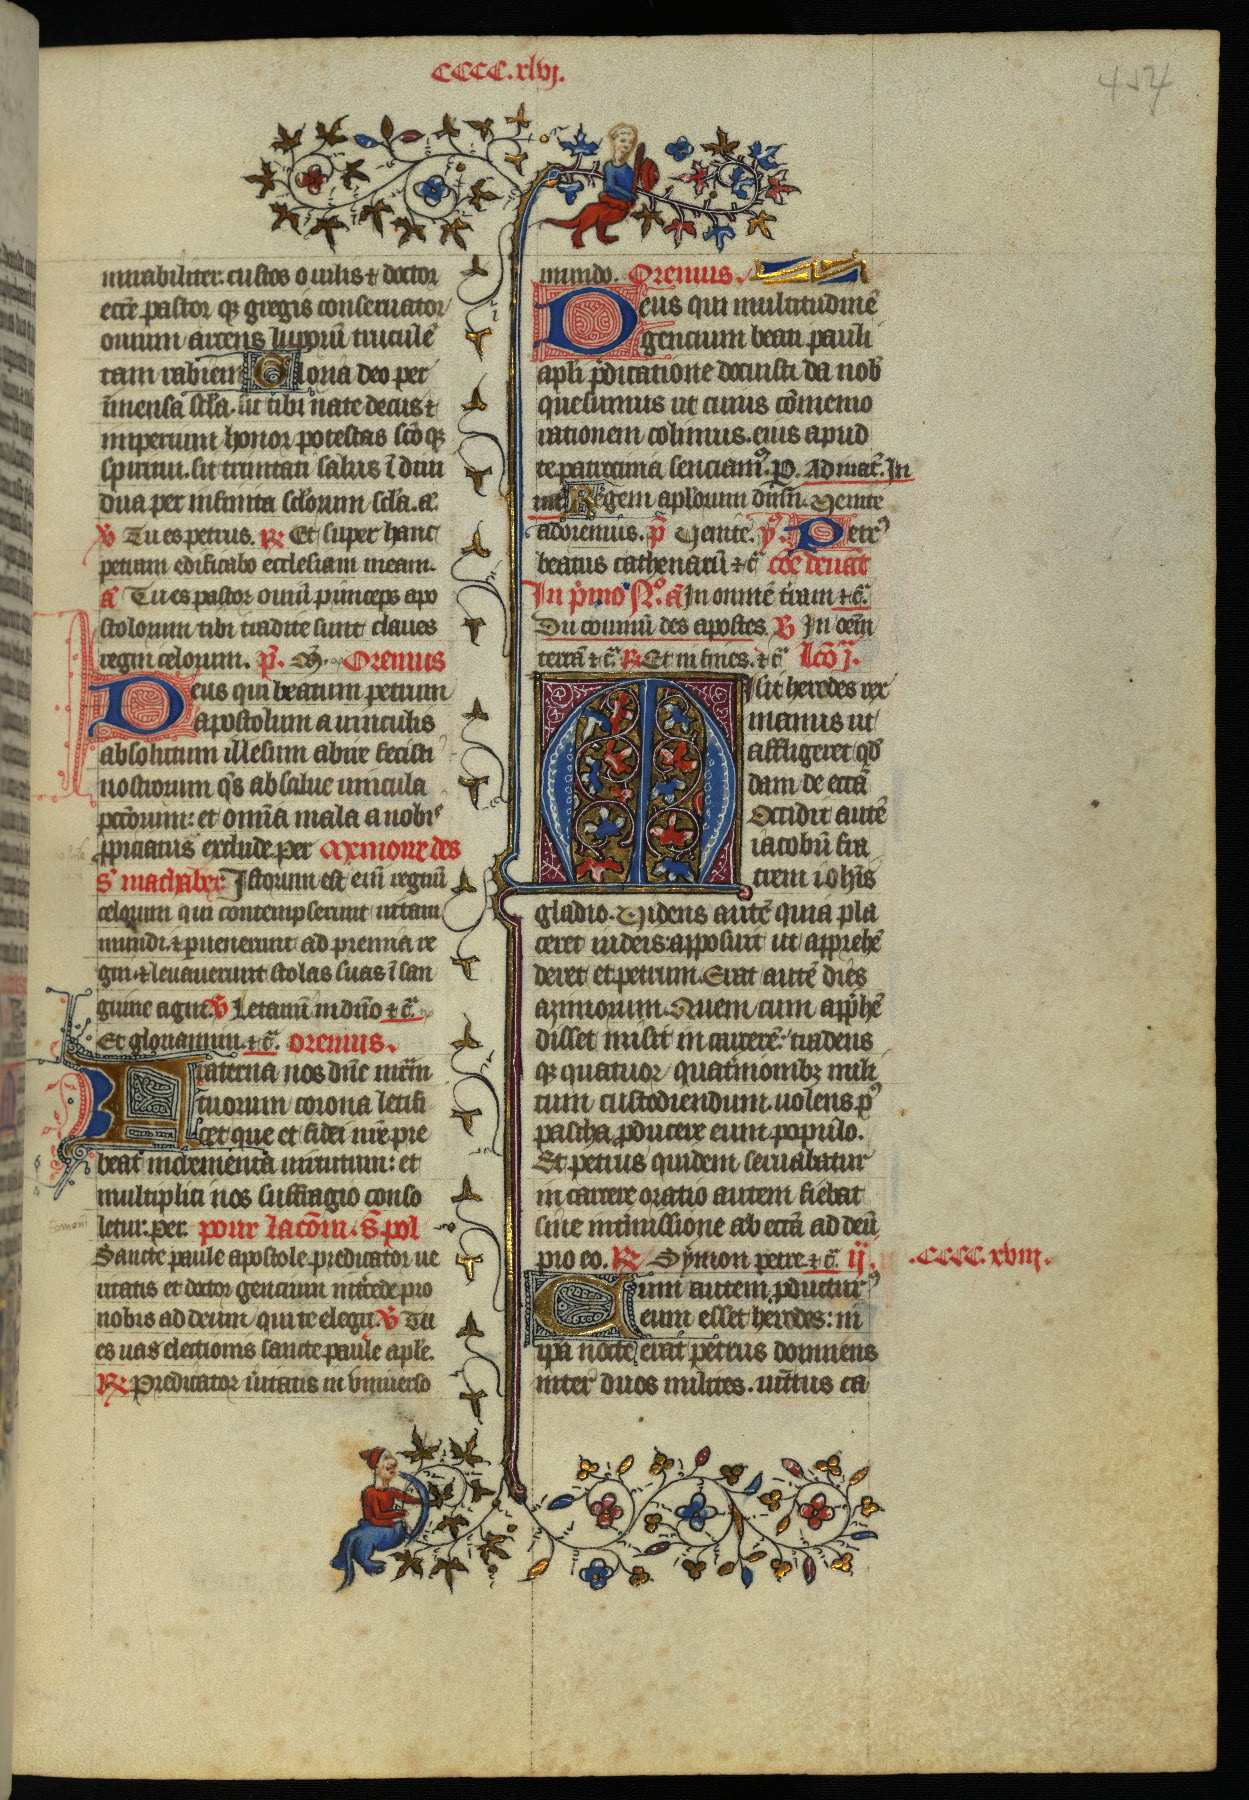 CCCC.xlvj.
454
mirabiliter. custos ovilis ⁊ doctor
eccẽ pastor qꝫ gregis conseruator
omnium arcens luporũ truculẽ
tam rabiem Gloria deo per
ĩmensa scła. sit tibi nate decus ⁊
imperium honor potestas scõ qꝫ
spiritui. sit trinitati salus ĩ diui
dua per infinita sclorum scła. aͤ.
℣ Tu es petrus. ℟ Et super hanc
petram edificabo ecclesiam meam.
aͣ Tu es pastor ouiũ princeps apo
stolorum tibi tradite sunt claues
regni celorum. p̃. Oremus
Deus qui beatum petrum
apostolum a uinculis
absolutum illesum abire fecisti
nostrorum q̃s absolue uincula
pctõrum: et omĩa mala a nobis
ꝓpiciatus exclude. per Memoire des
s̃ machabez Istorum est eĩ regnũ
celorum qui contempserunt uitam
mundi. ⁊ puenerunt ad premia re
gni ⁊ lauauerunt stolas suas ĩ san
guine agni. ℣ Letamĩ in dño ⁊ c̃.
Et gloriamini. ⁊ c̃. oremus.
Fraterna nos dñe mr̃m
tuorum corona letifi
cet que et fidei nr̃e pre
beat incrementa uirtutum: et
multiplici nos suffragio conso
letur. per. pour lacõm. s. pol
Sancte paule apostole predicator ue
ritatis et doctor gencium intercede pro
nobis ad deum qui te elegit. ℣ Tu
es uas electionis sancte paule aple.
℟ Predicator ũitatis in vniuerso
mundo. Oremus.
Deus qui multitudinẽ
gencium beati pauli
apłi p̃dicatione docuisti da nob
quesumus ut cuius cõmemo
rationem colimus. eius apud
te patrocinia senciamꝰ. P. Ad mat̃. In
uit̃ Regem apłorum dñm. Venite
adoremus. p̃ Venite. y̾. Petrꝰ
beatus cathenarũ ⁊ c̃
In p̃mo Nᵒ. ã In omnẽ tiram ⁊ c̃.
Du commũ des apostes. ℣ In oẽm
terrã ⁊ c̃. ℟ Et in fines. ⁊ c̃ Lcõ j.
Misit herodes rex
manus ut
affligeret qͦs
dam de eccã
Occidit autẽ
iacobũ fra
trem iohis
gladio. Videns autẽ quia pla
ceret iudeis: apposuit ut apprehẽ
deret et petrum. Erat autẽ dies
azimorum. Quem cum app̃hẽ
disset misit in carcerẽ: tradens
qꝫ quatuor quat̃nionibꝫ mili
tum custodiendum. uolens pꝰ
pascha ꝓducere eum populo.
Et petrus quidem seruabatur
in carcere oratio autem fiebat
sine int̃missione ab eccã ad deũ
pro eo. ℟ Symon petre ⁊ c̃ ij.
.CCCC. xviij.
Cum autem ꝓducturꝰ
eum esset herodes: in
ipa nocte erat petrus dormiens
inter duos milites. uinctus ca